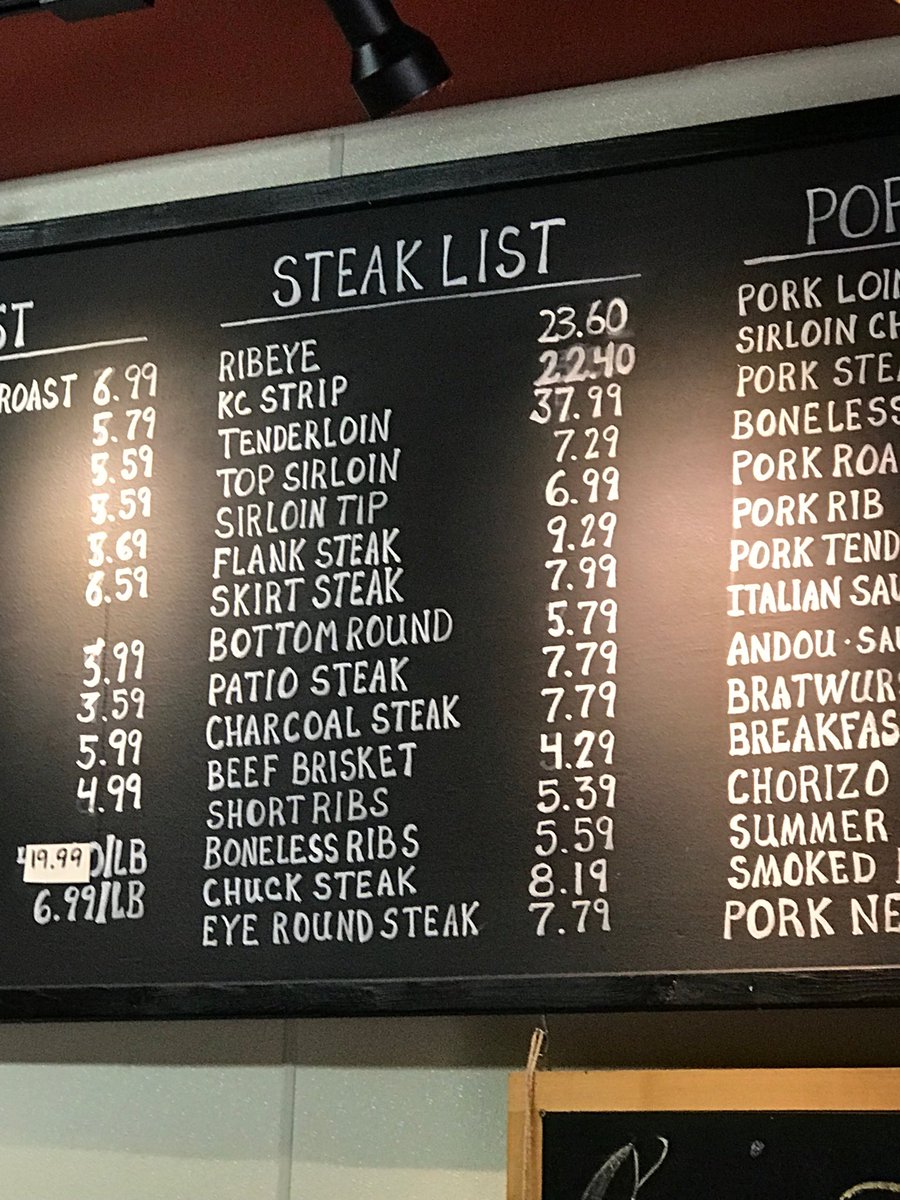 ST
ROAST 6.99
5.79
3.59
3.59
3.69
6.59
3.99
3.59
5.99
4.99
19.99 /LB
6.99/LB
STEAK LIST
RIBEYE 23.60
KC STRIP 22.40
TENDERLOIN 37.99
TOP SIRLOIN 7.29
SIRLOIN TIP 6.99
FLANK STEAK 9.29
SKIRT STEAK 7.99
BOTTOM ROUND 5.79
PATIO STEAK 7.79
CHARCOAL STEAK 7.79
BEEF BRISKET 4.29
SHORT RIBS 5.39
BONELESS RIBS 5.59
CHUCK STEAK 8.19
EYE ROUND STEAK 7.79
POR
PORK LOIN
SIRLOIN CH
PORK STEA
BONELESS
PORK ROA
PORK RIB
PORK TEND
ITALIAN SAU
ANDOU · SAU
BRATWURS
BREAKFAS
CHORIZO
SUMMER
SMOKED
PORK NE